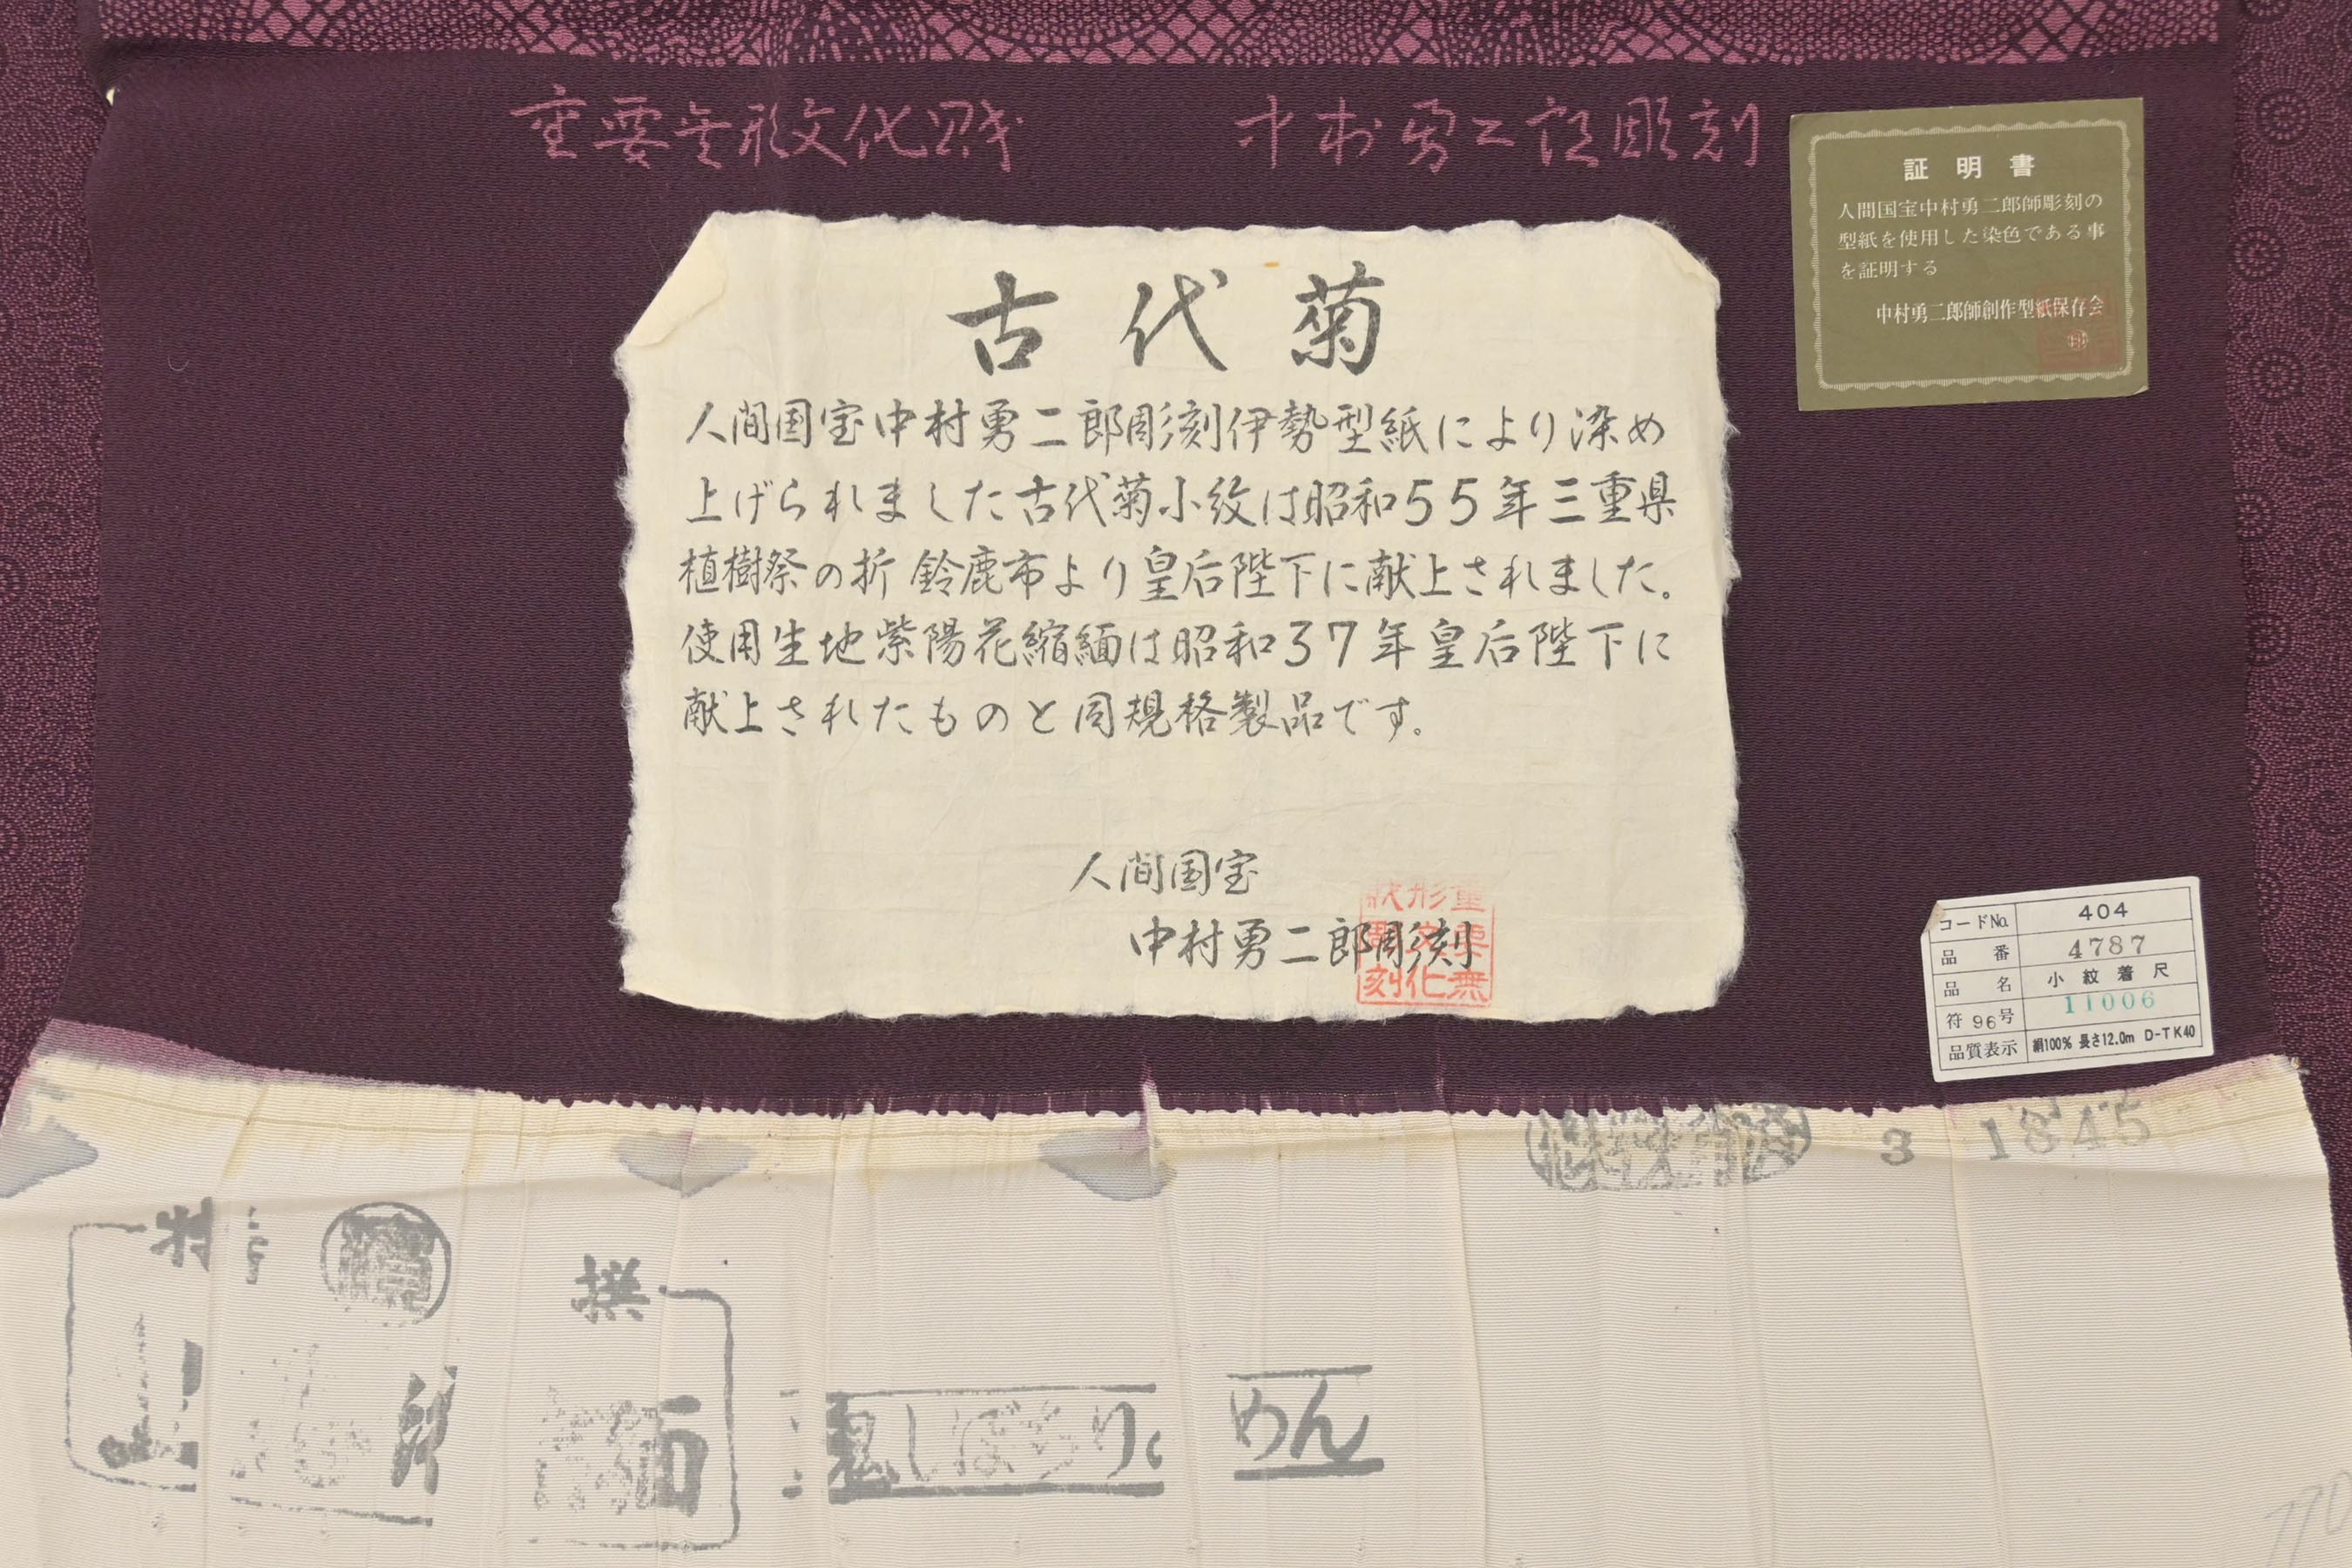 重要無形文化財 中村勇二郎彫刻
証明書
人間国宝中村勇二郎師彫刻の
型紙を使用した染色である事
を証明する
中村勇二郎師創作型紙保存会
古代菊
人間国宝中村勇二郎彫刻伊勢型紙により染め
上げられました古代菊小紋は昭和55年三重県
植樹祭の折 鈴鹿市より皇后陛下に献上されました。
使用生地紫陽花縮緬は昭和37年皇后陛下に
献上されたものと同規格製品です。
人間国宝
中村勇二郎彫刻
コードNo. 404
品番 4787
品名 小紋着尺
符96号 11006
品質表示 絹100% 長さ12.0m D-TK40
3 1845
特
撰
鬼しぼちりめん